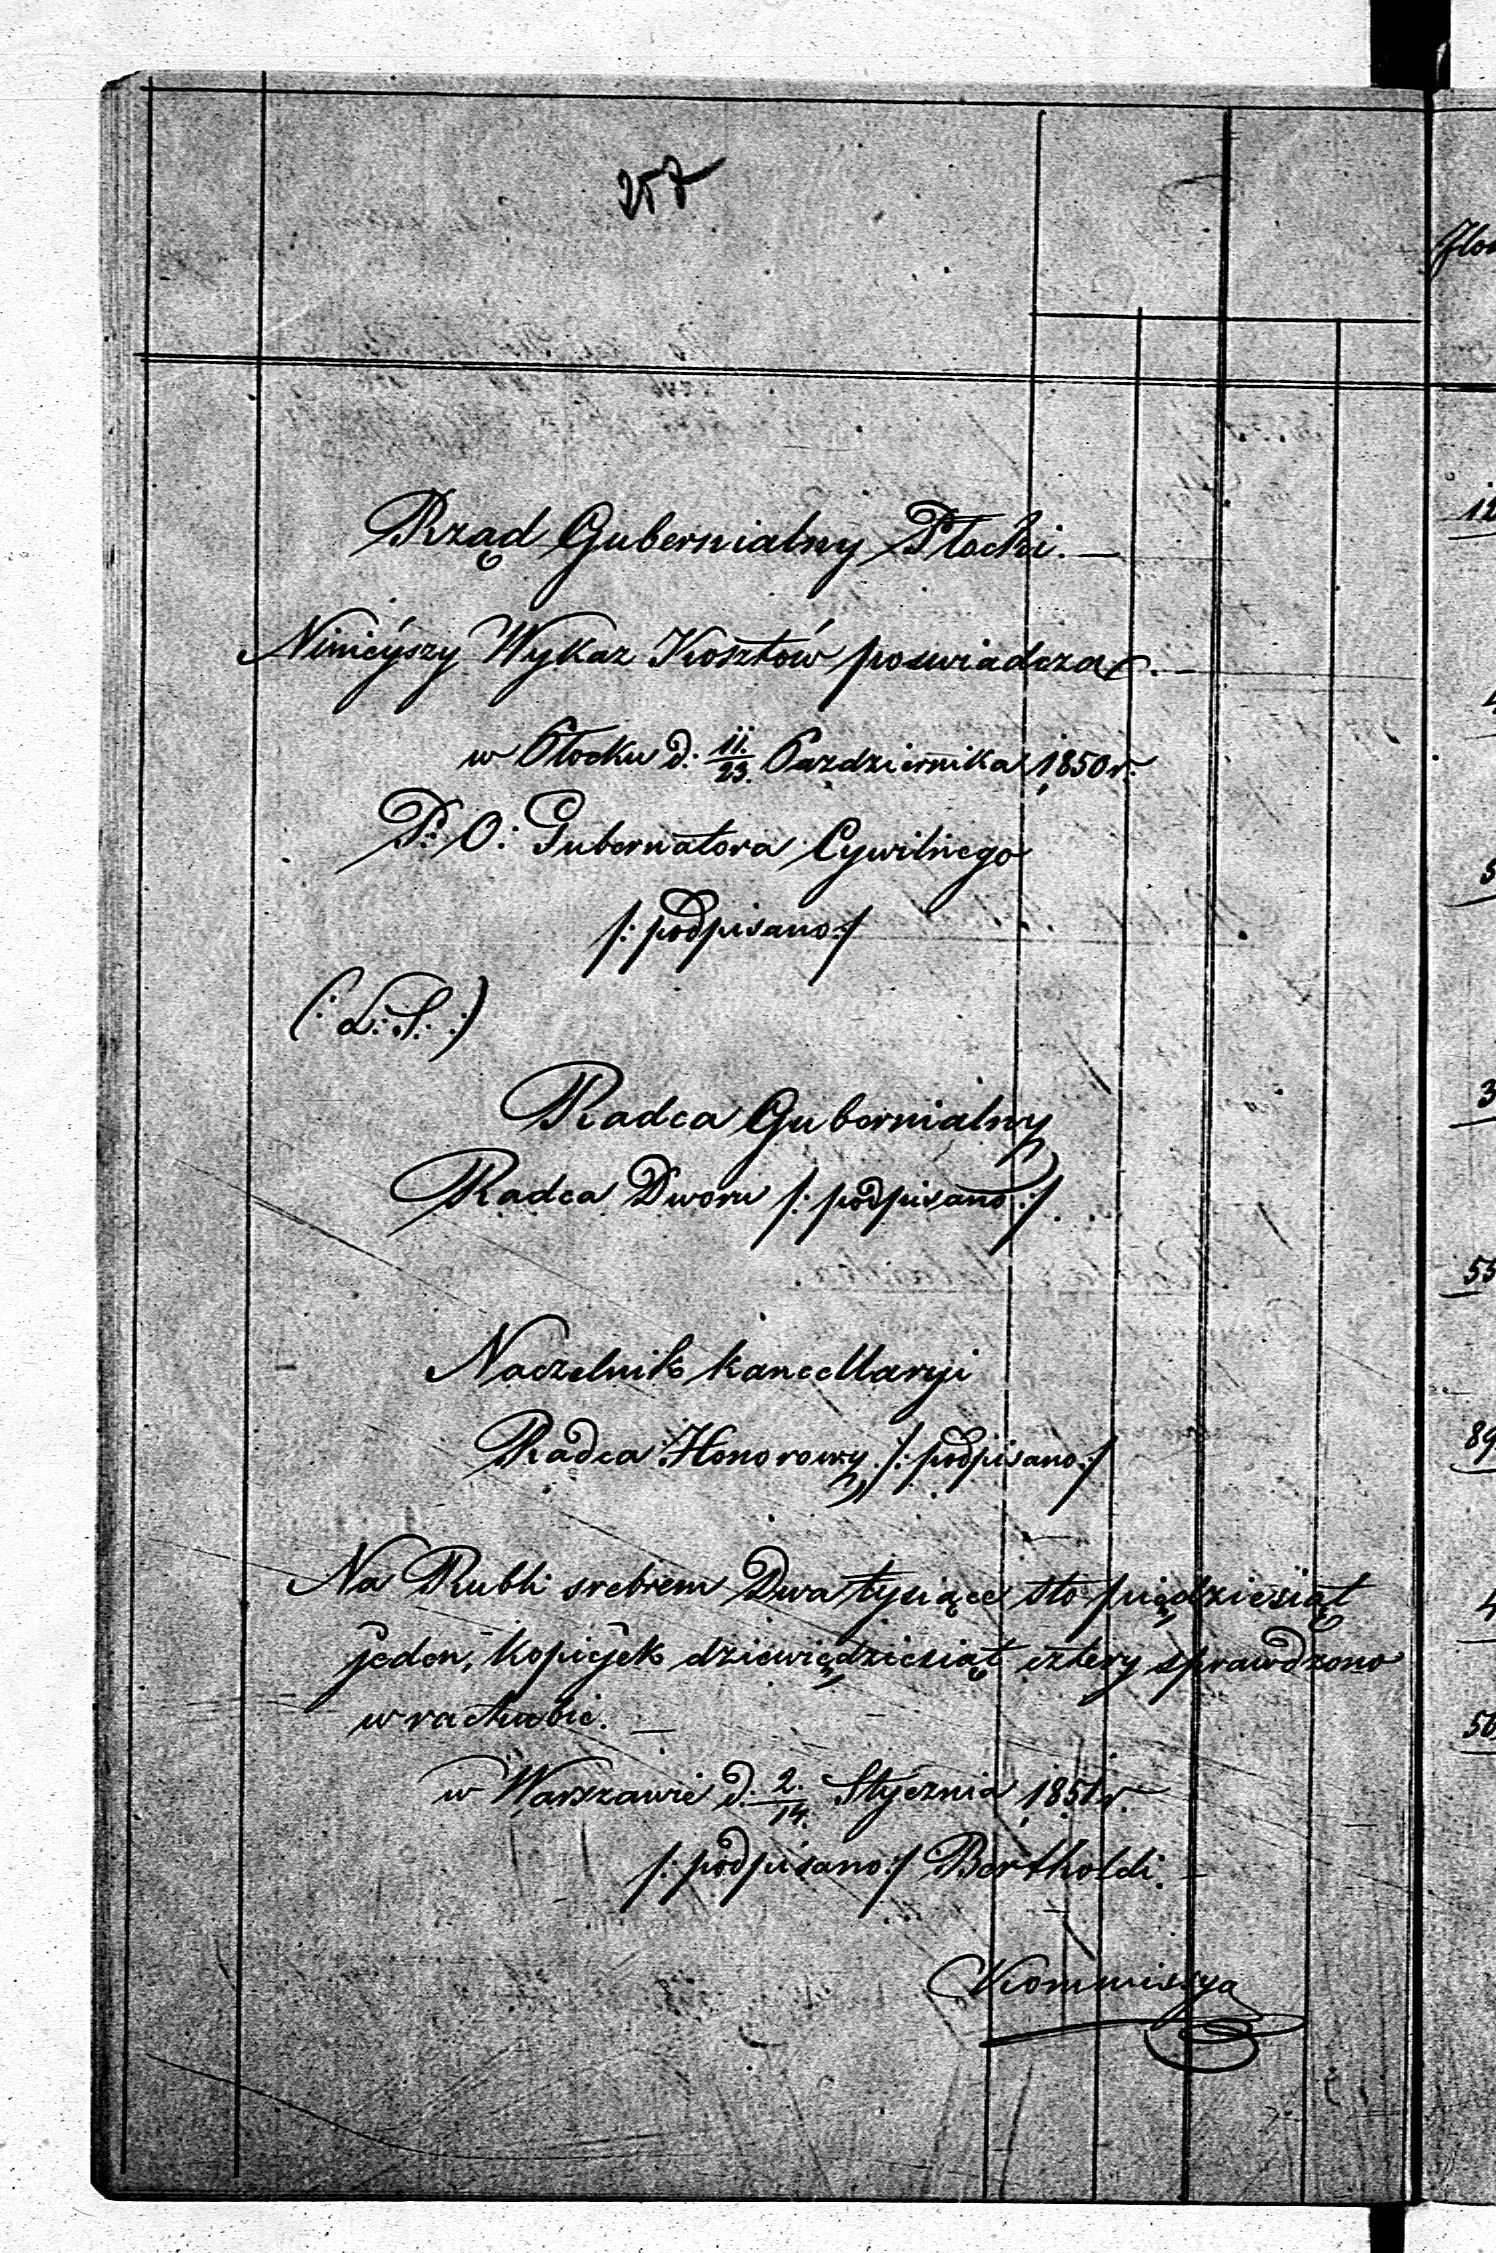 257
Rząd Gubernialny Płocki. —
Ninieyszy Wykaz Kosztów poswiadcza. —
w Płocku d: 11./23. Pazdziernika 1850 r:
P: O: Gubernatora Cywilnego
/: podpisano :/
(: L: S: :)
Radca Gubernialny
Radca Dworu /: podpisano :/
Naczelnik kancellaryi
Radca Honorowy /: podpisano :/
Na Rubli srebrem Dwa tysiące sto piędziesiąt
jeden, kopiejek dziewiędziesiąt cztery sprawdzono
w rachubie. —
w Warszawie d: 2./14. Stycznia 1851 r.
/: podpisano :/ Bertholdi. —
Kommissya